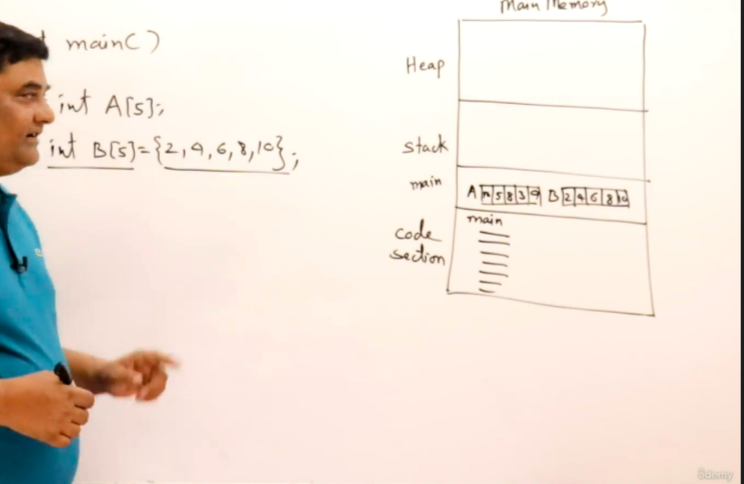 main()
int A[5];
int B[5]={2,4,6,8,10};
Main Memory
Heap
Stack
main
A 5 8 3 9 B 2 4 6 8 10
main
code
section
ûdemy